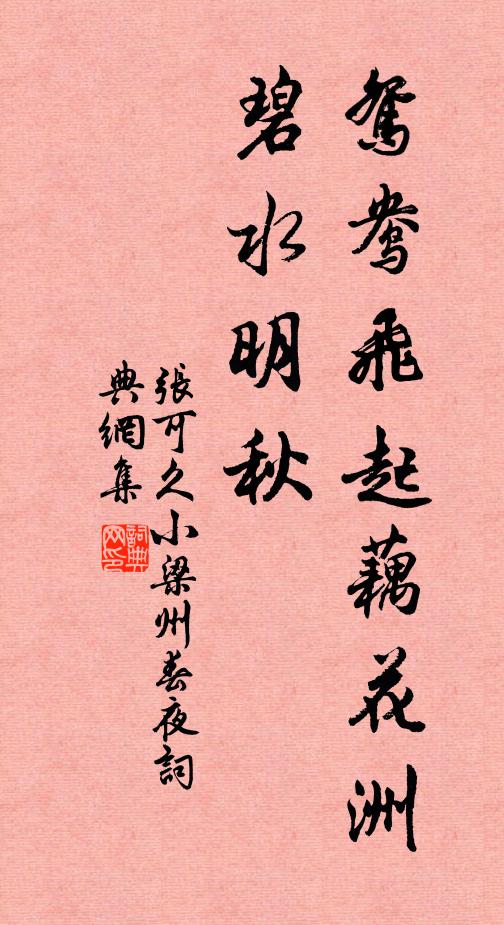 鴛鴦飛起藕花洲
碧水明秋
張可久小梁州春夜詞
典網集
詞典网印